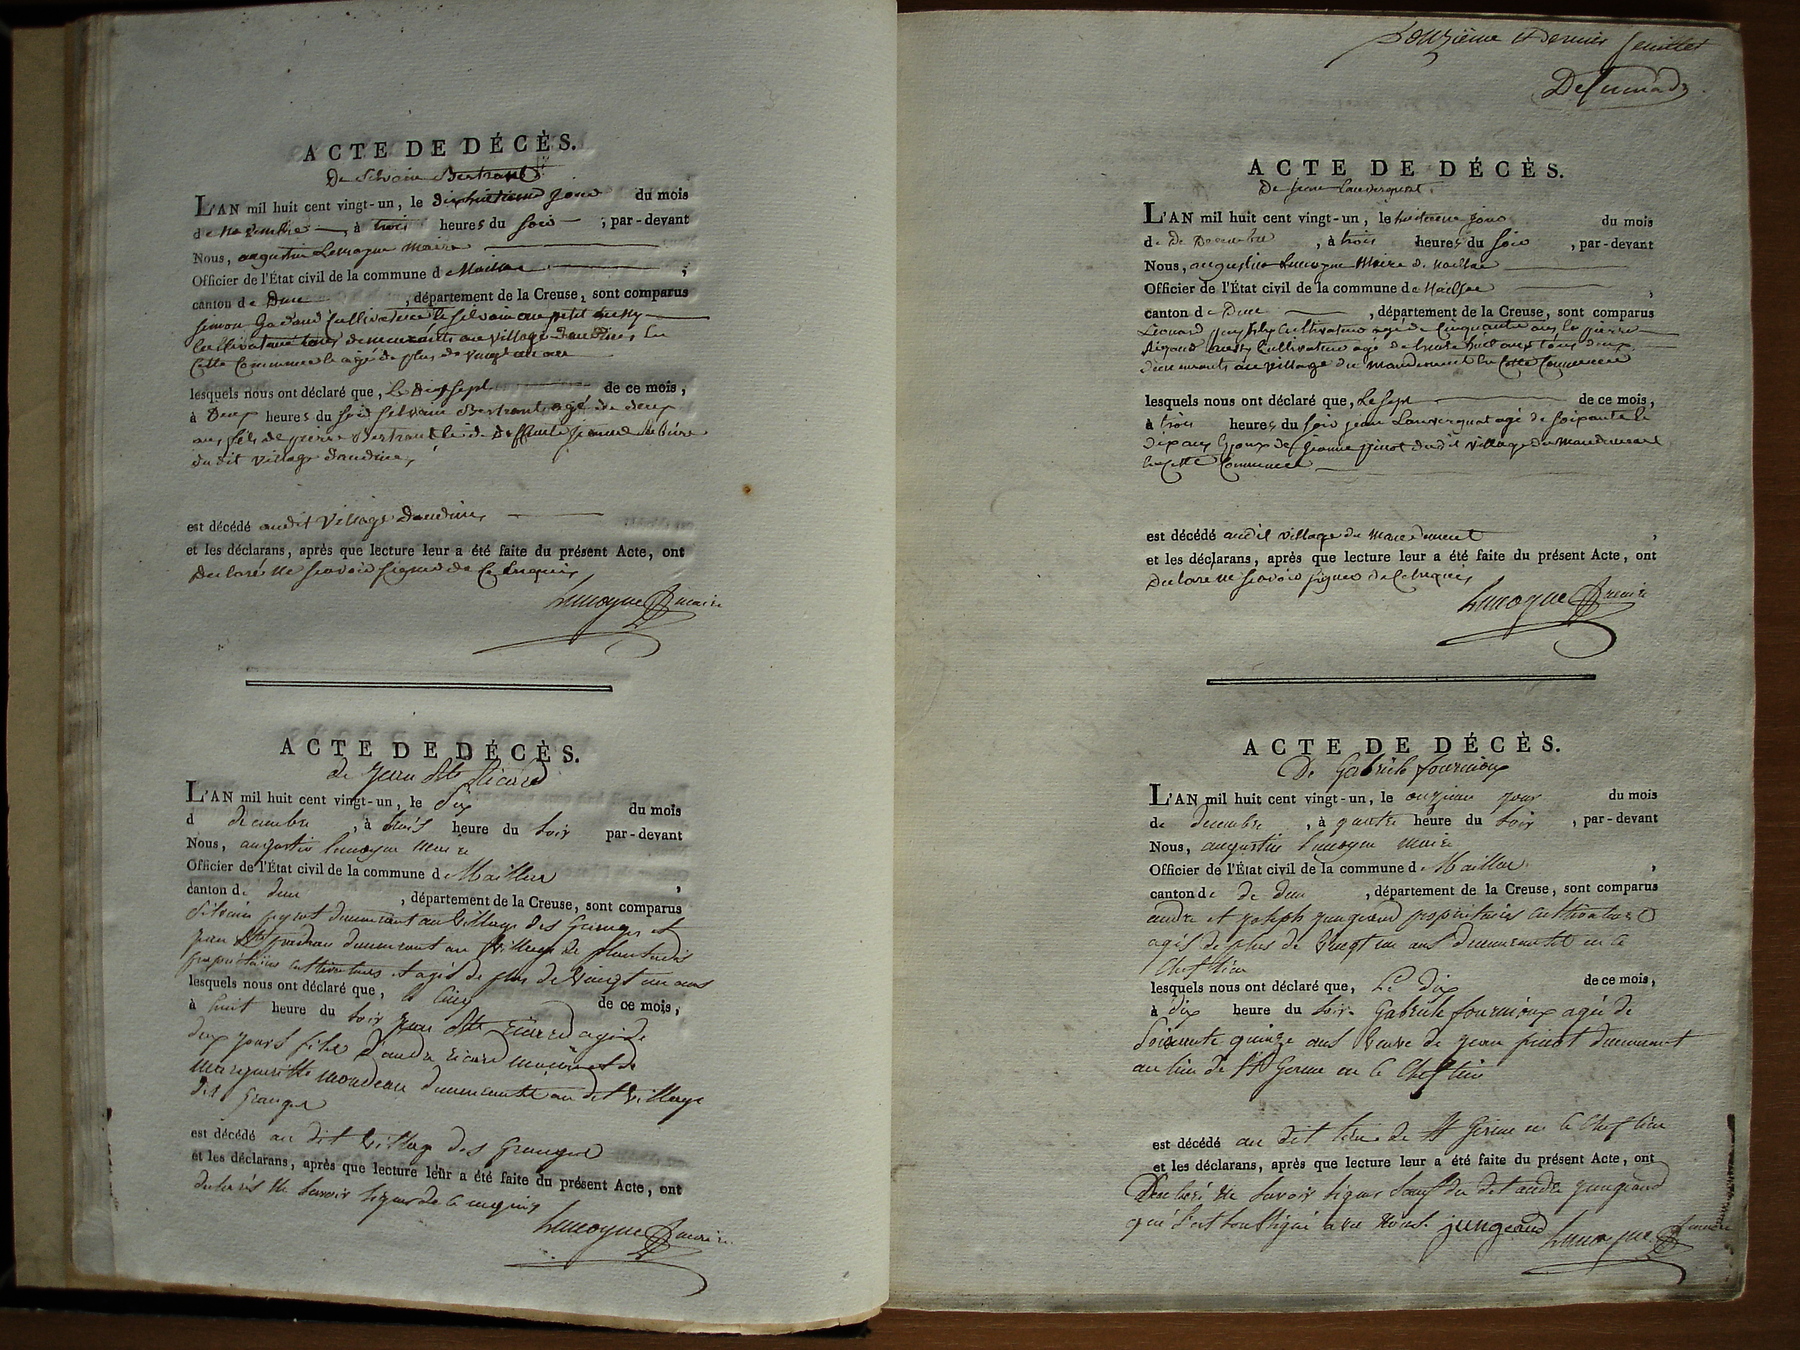 ACTE DE DÉCÈS.
De Selvain Bertrant
L'AN mil huit cent vingt-un, le dixhuitieme jour du mois
de novembre, à trois heures du soir, par-devant
Nous, augustin Lemoyne maire
Officier de l'État civil de la commune d Maillac
canton de Dun, département de la Creuse, sont comparus
simon Cultivateur et selvain petit
Cultivateur tous demeurants au village
Cette Commune agé de plus de vingt un an
lesquels nous ont déclaré que, Le Dix sept de ce mois,
à Deux heures du soir selvain Bertrant agé de deux
ans fils de pierre Bertrant et de Deffunte jeanne
du dit village
est décédé audit village
et les déclarans, après que lecture leur a été faite du présent Acte, ont
Declaré ne scavoir signer de Ce Enquis
Lemoyne maire
ACTE DE DÉCÈS.
de jean Bte Ricard
L'AN mil huit cent vingt-un, le dix du mois
d decembre, à trois heure du soir par-devant
Nous, augustin Lemoyne maire
Officier de l'État civil de la commune d Maillac,
canton de dun, département de la Creuse, sont comparus
Silvain demeurant au village des Granges et
jean Bte demeurant au village de
propriétaires cultivateurs et agés de plus de vingt un ans
lesquels nous ont déclaré que, le cinq de ce mois,
à huit heure du soir jean Bte Ricard agé de
dix jours fils d'andré ricard et de
margueritte mondeau demeurant au dit village
des Granges
est décédé au dit village des Granges
et les déclarans, après que lecture leur a été faite du présent Acte, ont
declarés ne savoir signer de ce enquis
Lemoyne maire
Douzième et dernier feuillet
ACTE DE DÉCÈS.
De jean Lauvergnat
L'AN mil huit cent vingt-un, le huitieme jour du mois
de De Decembre, à trois heures du soir, par-devant
Nous, augustin Lemoyne Maire de Maillac
Officier de l'État civil de la commune de Maillac,
canton de Dun, département de la Creuse, sont comparus
Léonard Cultivateur agé de Cinquante ans et pierre
Cultivateur agé de trente huit ans tous deux
demeurants au village du mandement en Cette Commune
lesquels nous ont déclaré que, Le sept de ce mois,
à trois heures du soir jean Lauvergnat agé de soixante et
dix ans Epoux de jeanne pinot du dit village du Mandement
en Cette Commune
est décédé audit village du mandement,
et les déclarans, après que lecture leur a été faite du présent Acte, ont
Declare ne scavoir signer de Ce Enquis
Lemoyne maire
ACTE DE DÉCÈS.
De Gabriele fournioux
L'AN mil huit cent vingt-un, le onzieme jour du mois
de decembre, à quatre heure du soir, par-devant
Nous, augustin Lemoyne maire
Officier de l'État civil de la commune d Maillac,
canton de de dun, département de la Creuse, sont comparus
andré et joseph jungeaud propriétaires cultivateurs
agés de plus de vingt un ans demeurants en ce
Chef lieu
lesquels nous ont déclaré que, Le dix de ce mois,
à dix heure du soir Gabriele fournioux agée de
soixante quinze ans veuve de jean pinot demeurant
au lieu de St Germe en ce Chef lieu
est décédé au dit lieu de St Germe en ce Chef lieu
et les déclarans, après que lecture leur a été faite du présent Acte, ont
Declaré ne savoir signer sauf du dit andré jungeaud
qui s'est soussigné avec nous. jungeaud Lemoyne maire